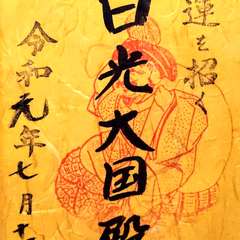 運を招く
日光大国殿
令和元年七月十